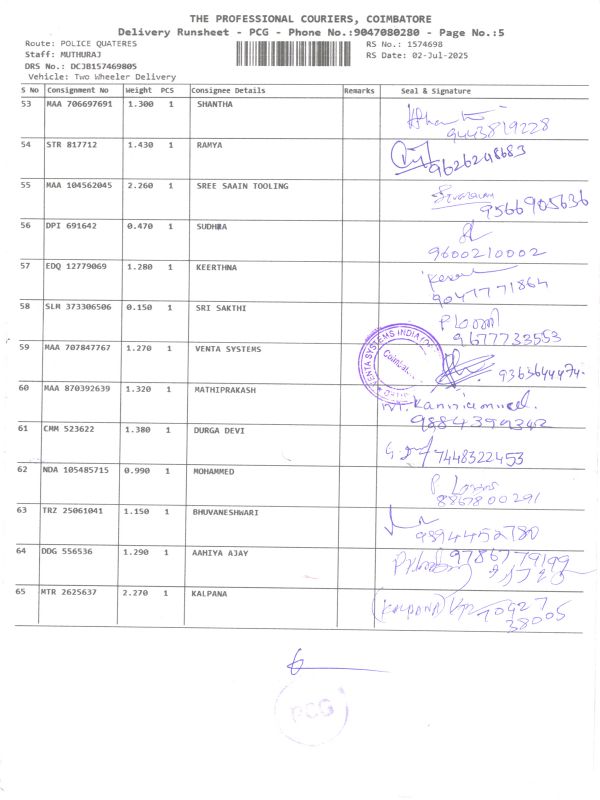 THE PROFESSIONAL COURIERS, COIMBATORE
Delivery Runsheet - PCG - Phone No.:9047080280 - Page No.:5
Route: POLICE QUATERES RS No.: 1574698
Staff: MUTHURAJ RS Date: 02-Jul-2025
DRS No.: DCJB157469805
Vehicle: Two Wheeler Delivery
S No Consignment No Weight PCS Consignee Details Remarks Seal & Signature
53 MAA 706697691 1.300 1 SHANTHA
9443819228
54 STR 817712 1.430 1 RAMYA
9626248683
55 MAA 104562045 2.260 1 SREE SAAIN TOOLING
9566905636
56 DPI 691642 0.470 1 SUDHRA
9600210002
57 EDQ 12779069 1.280 1 KEERTHNA
9047771864
58 SLM 373306506 0.150 1 SRI SAKTHI
9677733553
59 MAA 707847767 1.270 1 VENTA SYSTEMS
VENTA SYSTEMS INDIA
9363644474.
60 MAA 870392639 1.320 1 MATHIPRAKASH
9884399342
61 CMM 523622 1.380 1 DURGA DEVI
7448322453
62 NDA 105485715 0.990 1 MOHAMMED
8867800291
63 TRZ 25061041 1.150 1 BHUVANESHWARI
9894452780
64 DDG 556536 1.290 1 AAHIYA AJAY
9786779199
65 MTR 2625637 2.270 1 KALPANA
(KALPANA)
70927
38005
PCG